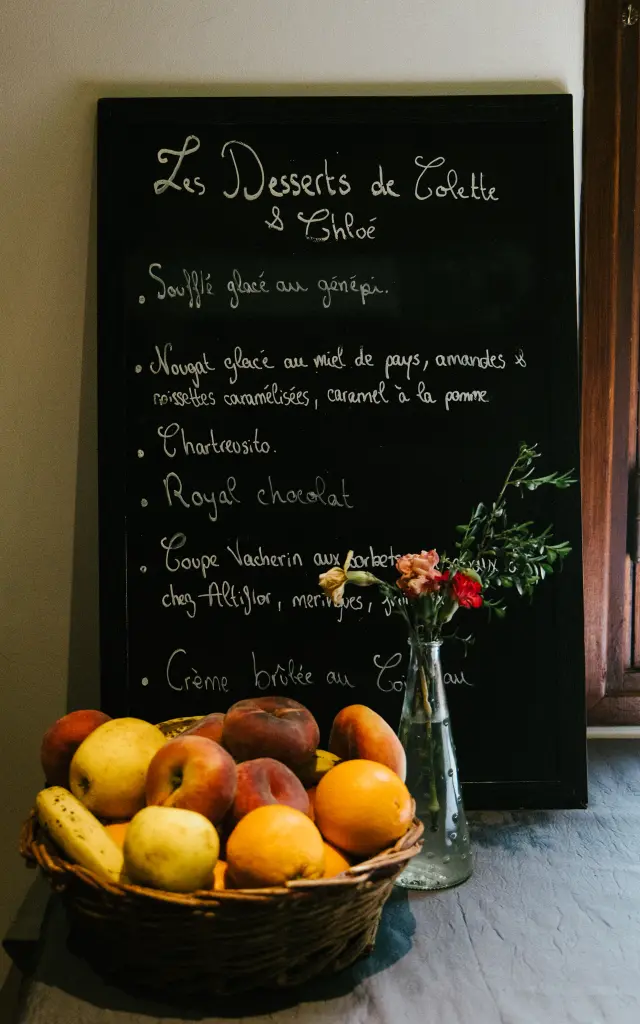 Les Desserts de Colette
& Chloé
• Soufflé glacé au génépi.
• Nougat glacé au miel de pays, amandes &
noisettes caramélisées, caramel à la pomme
• Chartreusito.
• Royal chocolat
• Coupe Vacherin aux sorbets
chez Altiflor, meringues,
• Crème brûlée au